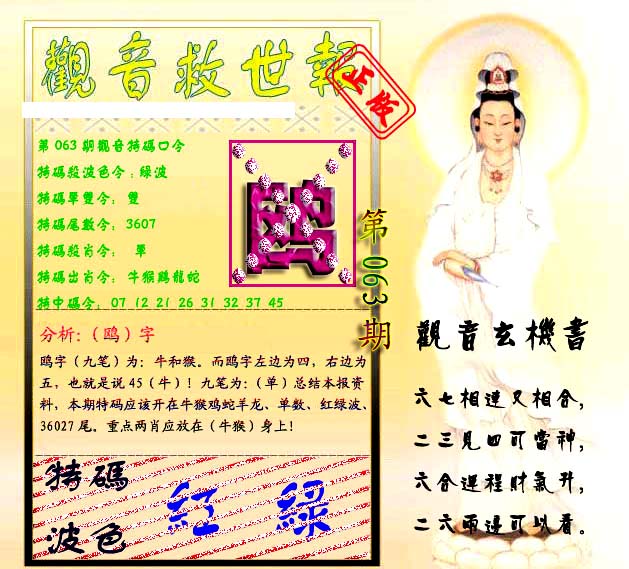 觀音救世報
正版
第 063 期觀音特碼口令
特碼殺波色令：綠波
特碼單雙令： 雙
特碼尾數令： 3607
特碼殺肖令： 單
特碼出肖令： 牛猴鷄龍蛇
特中碼令： 07 12 21 26 31 32 37 45
鸥
第 063 期
分析:（鸥）字
鸥字（九笔）为：牛和猴。而鸥字左边为四，右边为
五，也就是说 45（牛）！九笔为：（单）总结本报资
料，本期特码应该开在牛猴鸡蛇羊龙、单数、红绿波、
36027 尾。重点两肖应放在（牛猴）身上！
特碼
波色
紅 綠
觀音玄機書
六七相連又相合，
二三見四可當神，
六合運程財氣升，
二六兩邊可以看。